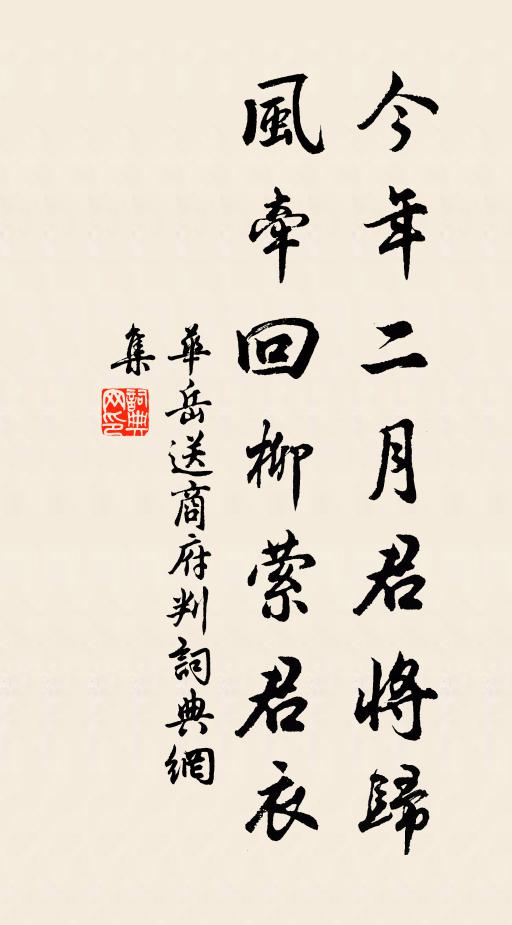 今年二月君將歸
風牽回柳縈君衣
華岳送商府判詞典網
集
詞典
网印